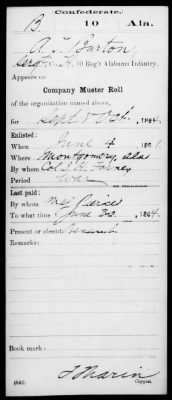 Confederate.
B. 10 Ala.
A. J. Burton,
Sergt., Co. H, 10 Reg't Alabama Infantry.
Appears on
Company Muster Roll
of the organization named above,
for Sept & Oct, 1864.
Enlisted:
When June 4, 1861.
Where Montgomery, Ala
By whom Col. J. H.
Period war
Last paid:
By whom Maj Pierce
To what time June 30, 1864.
Present or absent Present
Remarks:
Book mark:
(642)
Copyist.